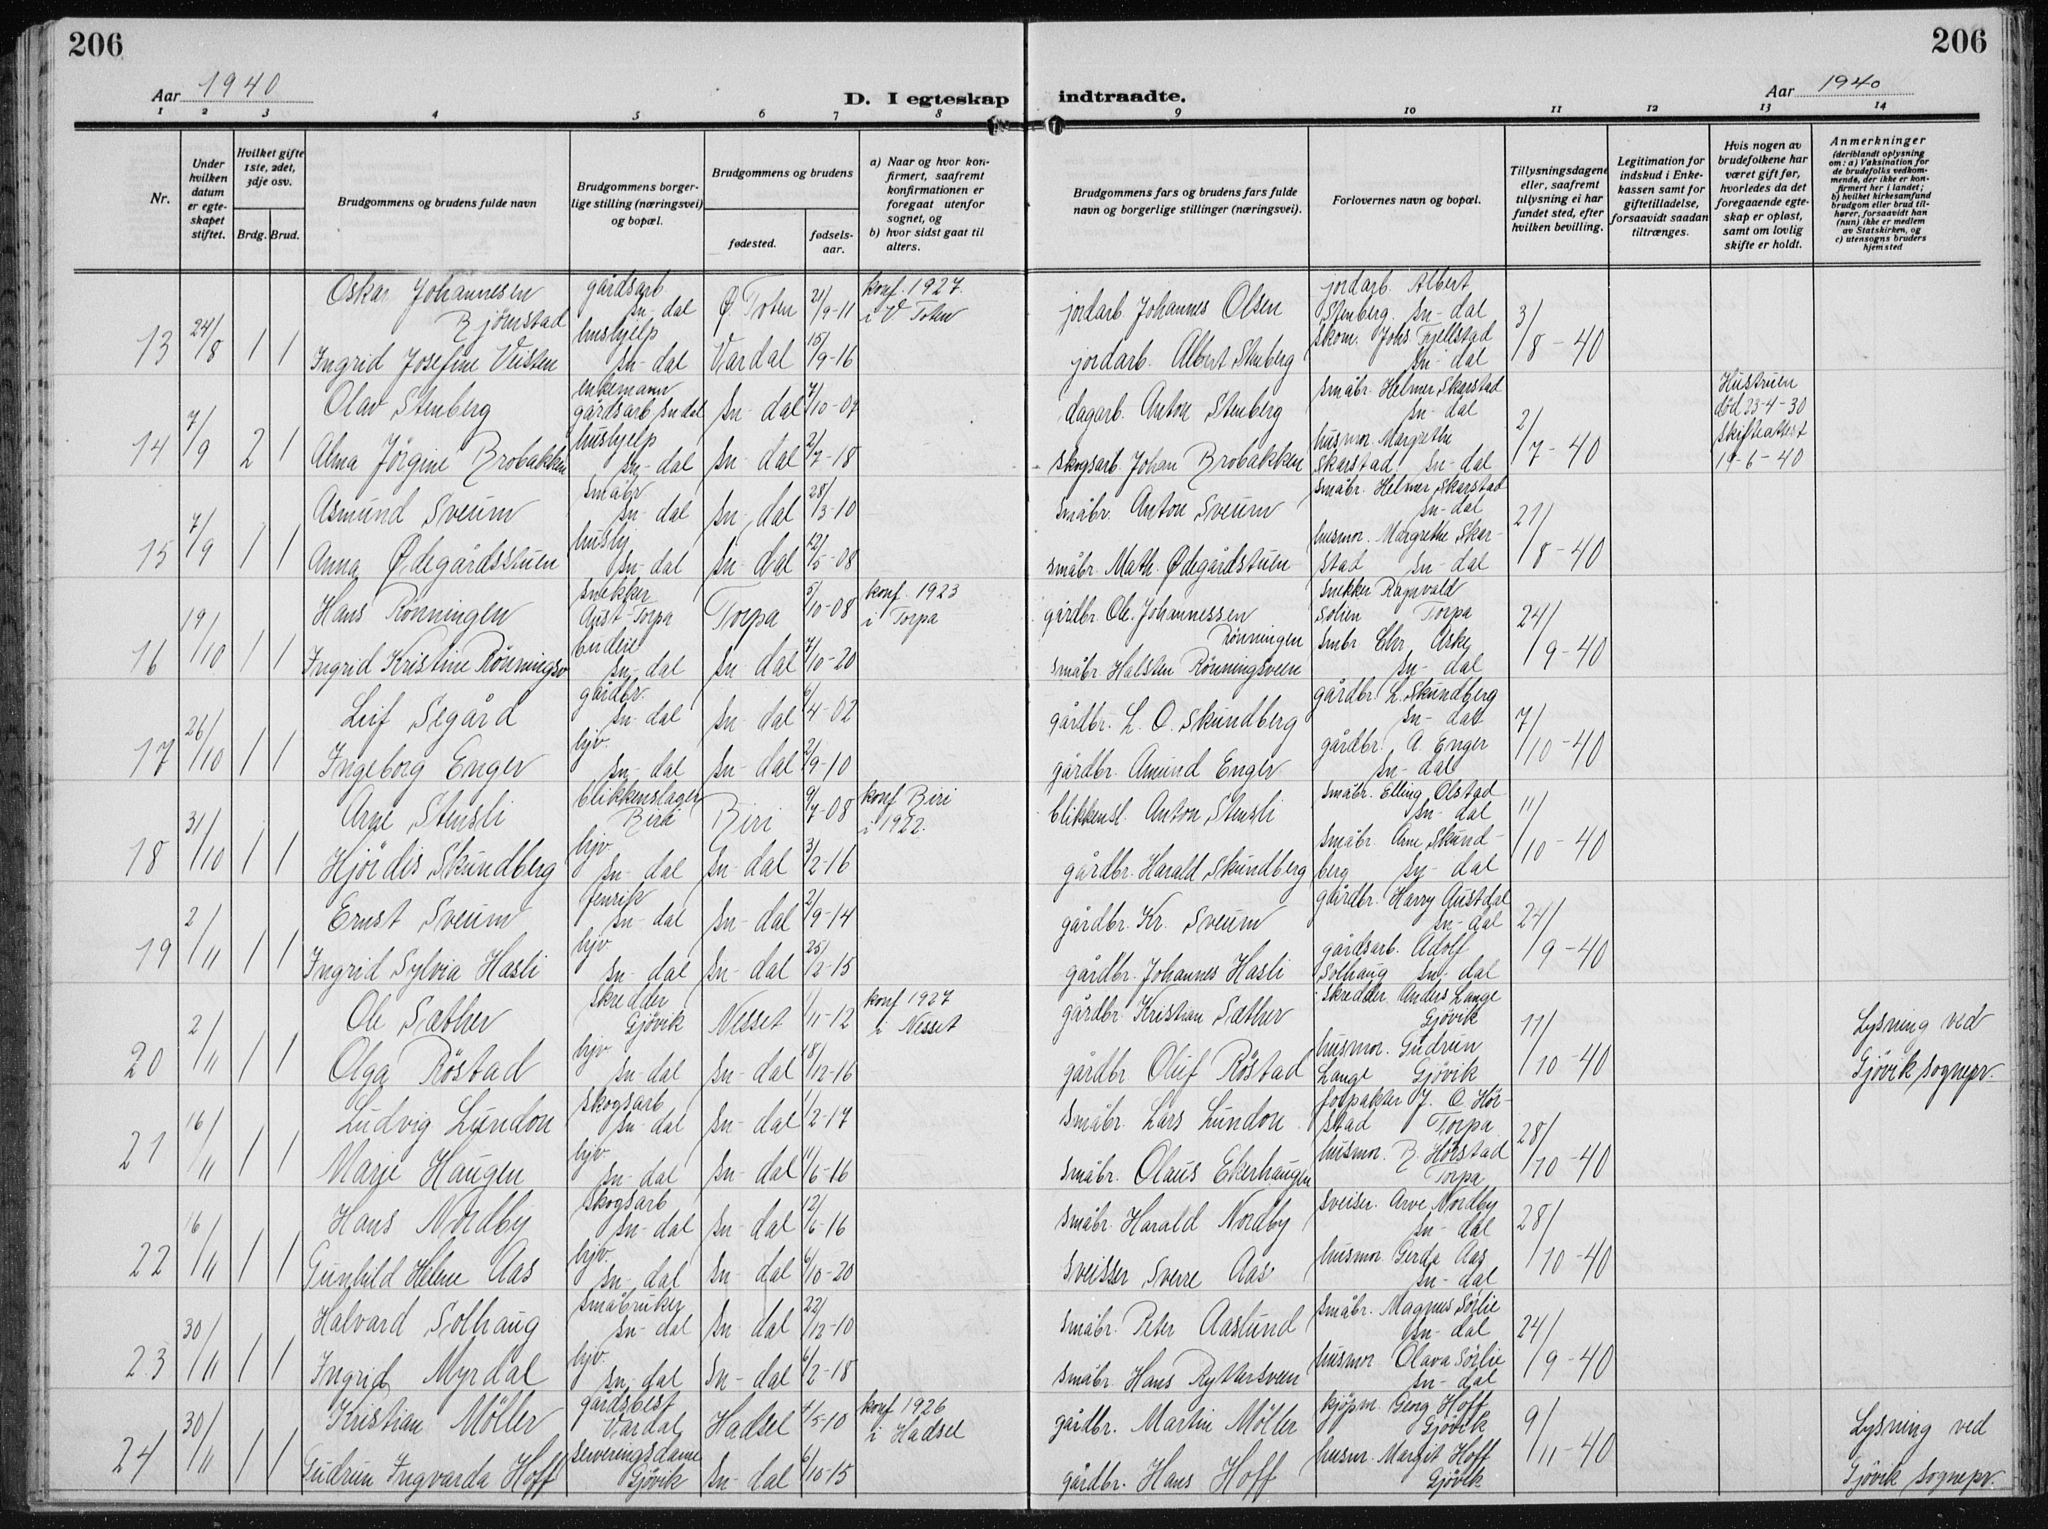 206
206
Aar 1940
D. I egteskap
indtraadte.
Aar 1940
1 2 3 4 5 6 7 8 9 10 11 12 13 14
Nr.
Under hvilken datum er egteskapet stiftet.
Hvilket gifte 1ste, 2det, 3dje osv.
Brdg. Brud.
Brudgommens og brudens fulde navn
Brudgommens borgerlige stilling (næringsvei) og bopæl.
Brudgommens og brudens
fødested.
fødselsaar.
a) Naar og hvor konfirmert, saafremt konfirmationen er foregaat utenfor sognet, og
b) hvor sidst gaat til alters.
Brudgommens fars og brudens fars fulde navn og borgerlige stillinger (næringsvei).
Forlovernes navn og bopæl.
Tillysningsdagene eller, saafremt tillysning ei har fundet sted, efter hvilken bevilling.
Legitimation for indskud i Enkekassen samt for giftetilladelse, forsaavidt saadan tiltrænges.
Hvis nogen av brudefolkene har været gift før, hvorledes da det foregaaende egteskap er opløst, samt om lovlig skifte er holdt.
Anmerkninger
(deriblandt oplysning om: a) Vaksination for de brudefolks vedkommende, der ikke er konfirmert her i landet; b) hvilket kirkesamfund brudgom eller brud tilhører, forsaavidt han (hun) ikke er medlem av Statskirken, og c) utensogns bruders hjemsted
13 24/8 1 1 Oskar Johannesen Bjørnstad gårdsarb Sn-dal Ø. Toten 21/9-11 konf. 1927 i V Toten jordarb. Johannes Olsen jordarb. Albert Stenberg. Sn-dal 3/8-40
Ingrid Josefine Veisten hushjelp Sn-dal Vardal 15/9-16 jordarb. Albert Stenberg skom. Johs Fjellstad Sn-dal
14 7/9 2 1 Olav Stenberg enkemann gårdsarb Sndal Sn-dal 7/10-07 dagarb. Anton Stenberg småbr. Helmer Skarstad Sn-dal 2/7-40 Hustruen død 23-4-30 skifteattest 19-6-40
Alma Jørgine Brobakken hushjelp Sn-dal Sn-dal 2/7-18 skogsarb. Johan Brobakken husmor. Margrethe Skarstad Sn-dal
15 7/9 1 1 Asmund Sveum småbr Sn-dal Sn-dal 28/3-10 småbr. Anton Sveum småbr. Helmer Skarstad Sn-dal 21/8-40
Anna Ødegårdsstuen Sn-dal Sn-dal 12/5-08 småbr. Math. Ødegårdstuen husmor. Margrethe Skarstad Sn-dal
16 19/10 1 1 Hans Rønningen snekker Aust-Torpa Torpa 5/10-08 konf 1923 i Torpa gårdbr. Ole Johannessen Rønningen snekker Ragnvald Solien Torpa 24/9-40
Ingrid Kristine Rønningsv budeie Sn-dal Sn-dal 7/10-20 småbr. Halsten Rønningsveen smbr Chr Aske Sn-dal
17 26/10 1 1 Leif Segård gårdbr. Sn-dal Sn-dal 6/4-02 gårdbr. L. O. Skundberg gårdbr. L. Skundberg Sn-dal 7/10-40
Ingeborg Enger hjv. Sn-dal Sn-dal 2/9-10 gårdbr. Amund Enger gårdbr. A. Enger Sn-dal
18 31/10 1 1 Arne Stensli blikkenslager Biri Biri 9/7-08 konf Biri i 1922. blikkensl. Anton Stensli småbr. Elling Olstad Sn-dal 11/10-40
Hjördis Skundberg hjv Sn-dal Sn-dal 3/2-16 gårdbr. Harald Skundberg småbr. Arne Skundberg Sn-dal
19 2/11 1 1 Ernst Sveum fenrik Sn-dal Sn-dal 2/9-14 gårdbr. Kr. Sveum gårdbr. Harry Austdal Sn-dal 24/9-40
Ingrid Sylvia Hasli hjv Sn-dal Sn-dal 25/12-15 gårdbr. Johannes Hasli gårdsarb. Adolf Solhaug Sn-dal
20 2/11 1 1 Ole Sæther skredder Gjövik Nesset 1/11-12 konf 1927 i Nesset gårdbr. Kristian Sæther skredder. Anders Lange Gjövik 11/10-40 Lysning ved Gjövik sognepr.
Olga Röstad hjv Sn-dal Sn-dal 18/12-16 gårdbr Oluf Röstad husmor. Gudrun Lange Gjövik
21 16/11 1 1 Ludvig Lundon skogsarb Sn-dal Sn-dal 1/2-17 småbr. Lars Lundon forpakter J. O Hörstad Torpa 28/10-40
Marie Haugen hjv. Sn-dal Sn-dal 11/6-16 småbr. Olaus Ekerhaugen husmor. R. Hörstad Torpa
22 16/11 1 1 Hans Nordby skogsarb Sn-dal Sn-dal 12/6-16 småbr. Harald Nordby sveiser. Arve Nordby Sn-dal 28/10-40
Gunhild Helene Aas hjv. Sn-dal Sn-dal 6/10-20 sveisser Sverre Aas husmor Gerda Aas Sn-dal
23 30/11 1 1 Halvard Solhaug småbruker Sn-dal Sn-dal 22/12-10 småbr. Peter Aaslund småbr. Magnus Sørlie Sn-dal 24/9-40
Ingrid Myrdal hjv. Sn-dal Sn-dal 6/2-18 småbr. Hans Ryvarsveen husmor Olava Sørlie Sn-dal
24 30/11 1 1 Kristian Möller gårdsbest Vardal Hadsel 4/5-10 konf 1926 i Hadsel gårdbr. Martin Möller kjöpm. Georg Hoff Gjövik 9/11-40 Lysning ved Gjövik sognepr.
Gudrun Ingvarda Hoff serveringsdame Gjövik Sn-dal 6/10-15 gårdbr. Hans Hoff husm. Margit Hoff Gjövik